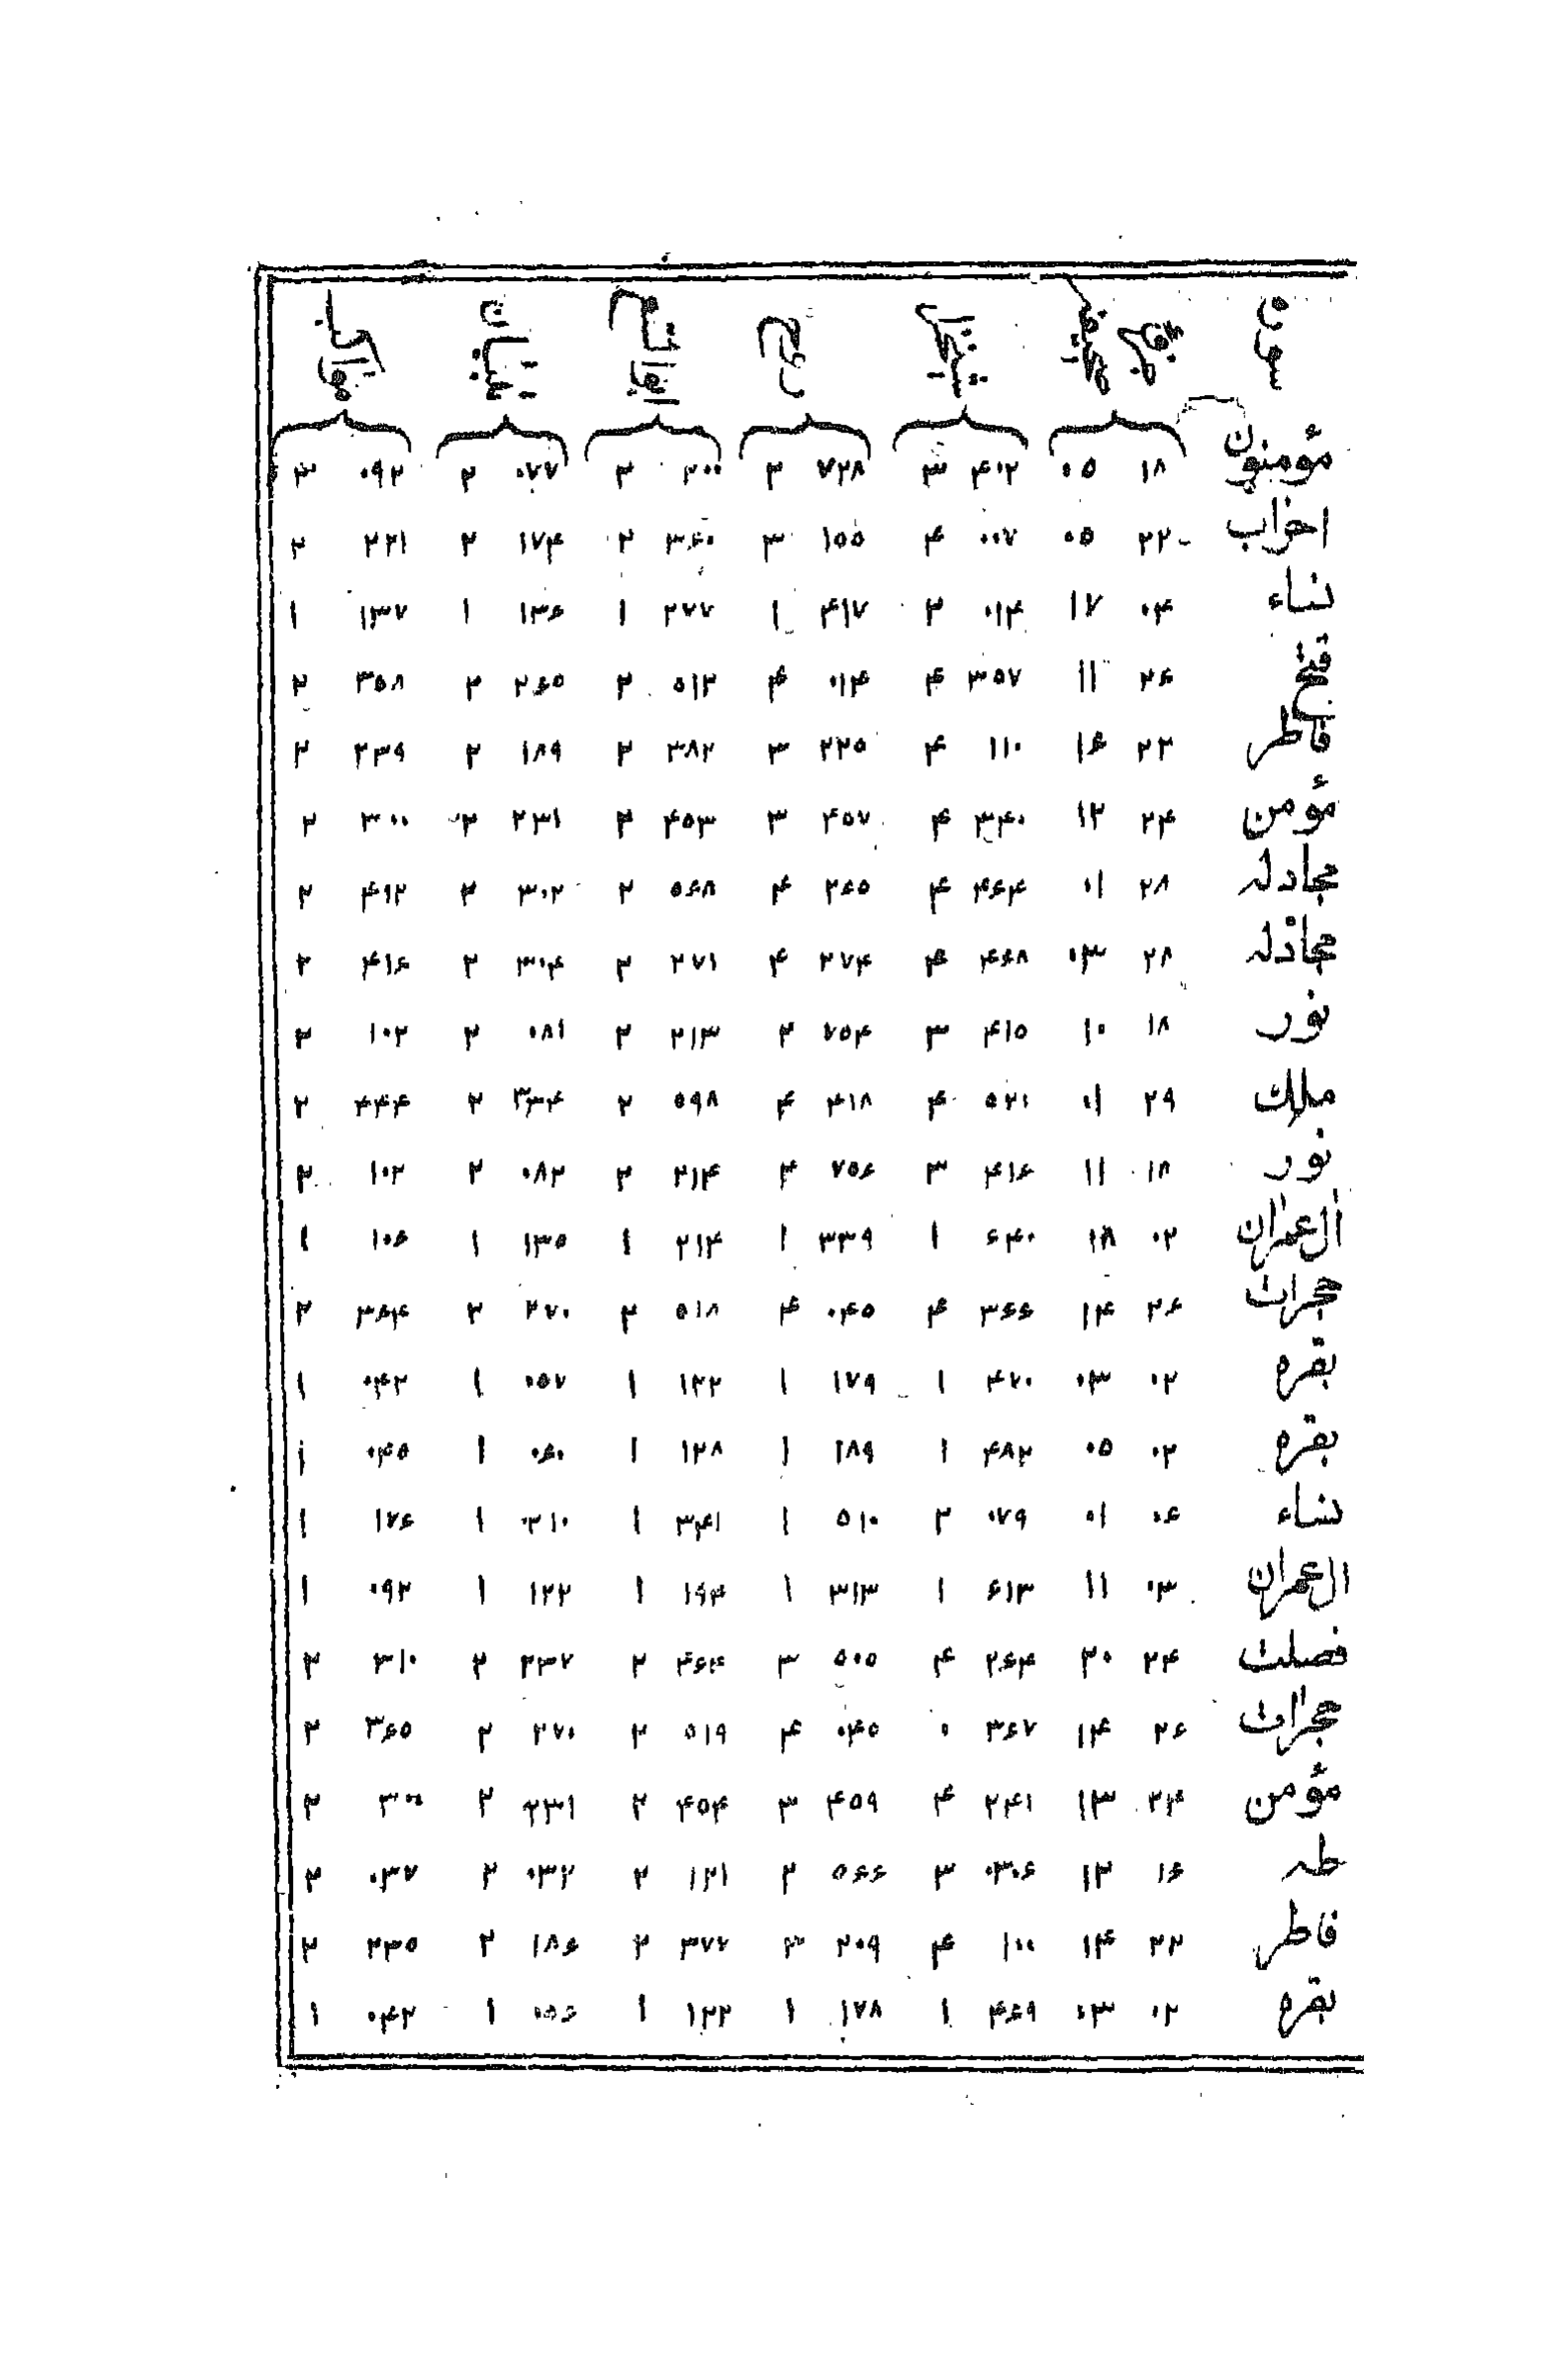 سوره
مؤمنون ۱۸ ۰۵ ۴۰۲ ۳ ۷۲۸ ۲ ۲۰۰ ۲ ۰۷۷ ۲ ۰۹۲ ۲
احزاب ۲۲ ۰۵ ۰۰۷ ۴ ۱۵۵ ۳ ۳۶۰ ۲ ۱۷۴ ۲ ۲۲۱ ۲
نساء ۰۴ ۱۷ ۰۱۴ ۲ ۴۱۷ ۱ ۲۷۷ ۱ ۱۳۶ ۱ ۱۳۷ ۱
فتح ۲۶ ۱۱ ۳۵۷ ۴ ۰۱۴ ۴ ۵۱۲ ۲ ۲۶۵ ۲ ۳۵۸ ۲
فاطر ۲۲ ۱۶ ۱۱۰ ۴ ۲۲۵ ۳ ۳۸۲ ۲ ۱۸۹ ۲ ۲۳۹ ۲
مؤمن ۲۴ ۱۲ ۳۴۰ ۴ ۴۵۷ ۳ ۴۵۳ ۲ ۲۳۱ ۲ ۳۰۰ ۲
مجادله ۲۸ ۰۱ ۴۶۴ ۴ ۲۶۵ ۴ ۵۶۸ ۲ ۳۰۲ ۲ ۴۱۲ ۲
مجادله ۲۸ ۰۳ ۴۶۸ ۴ ۲۷۴ ۴ ۲۷۱ ۲ ۳۰۴ ۲ ۴۱۶ ۲
نور ۱۸ ۱۰ ۴۱۵ ۳ ۷۵۴ ۲ ۲۱۳ ۲ ۰۸۱ ۲ ۱۰۲ ۲
ملك ۲۹ ۰۱ ۵۲۱ ۴ ۴۱۸ ۴ ۵۹۸ ۲ ۳۳۴ ۲ ۴۴۴ ۲
نور ۱۸ ۱۱ ۴۱۶ ۳ ۷۵۶ ۲ ۲۱۴ ۲ ۰۸۲ ۲ ۱۰۲ ۲
ال عمران ۰۲ ۱۸ ۶۴۰ ۱ ۳۳۹ ۱ ۲۱۴ ۱ ۱۳۵ ۱ ۱۰۶ ۱
حجرات ۲۶ ۱۴ ۳۶۶ ۴ ۰۴۵ ۴ ۵۱۸ ۲ ۲۷۰ ۲ ۳۶۴ ۲
بقره ۰۲ ۰۳ ۴۷۰ ۱ ۱۷۹ ۱ ۱۲۲ ۱ ۰۵۷ ۱ ۰۴۲ ۱
بقره ۰۲ ۰۵ ۴۸۲ ۱ ۱۸۹ ۱ ۱۲۸ ۱ ۰۶۰ ۱ ۰۴۵ ۱
نساء ۰۶ ۰۱ ۰۷۹ ۲ ۵۱۰ ۱ ۳۴۱ ۱ ۲۱۰ ۱ ۱۷۶ ۱
ال عمران ۰۳ ۱۱ ۶۱۳ ۱ ۳۱۳ ۱ ۱۹۴ ۱ ۱۲۲ ۱ ۰۹۲ ۱
فصلت ۲۴ ۲۰ ۲۶۴ ۴ ۵۰۵ ۳ ۴۶۴ ۲ ۲۳۷ ۲ ۳۱۰ ۲
حجرات ۲۶ ۱۴ ۳۶۷ ۰ ۰۴۵ ۴ ۵۱۹ ۲ ۲۷۰ ۲ ۳۶۵ ۲
مؤمن ۲۴ ۱۳ ۲۴۱ ۴ ۴۵۹ ۳ ۴۵۴ ۲ ۲۳۱ ۲ ۳۰۰ ۲
طه ۱۶ ۱۲ ۰۳۰۶ ۳ ۵۶۶ ۲ ۱۲۱ ۲ ۰۳۲ ۲ ۰۳۷ ۲
فاطر ۲۲ ۱۴ ۱۰۰ ۴ ۲۰۹ ۳ ۳۷۷ ۲ ۱۸۶ ۲ ۲۳۵ ۲
بقره ۰۲ ۰۳ ۴۶۹ ۱ ۱۷۸ ۱ ۱۲۲ ۱ ۰۵۶ ۱ ۰۴۲ ۱